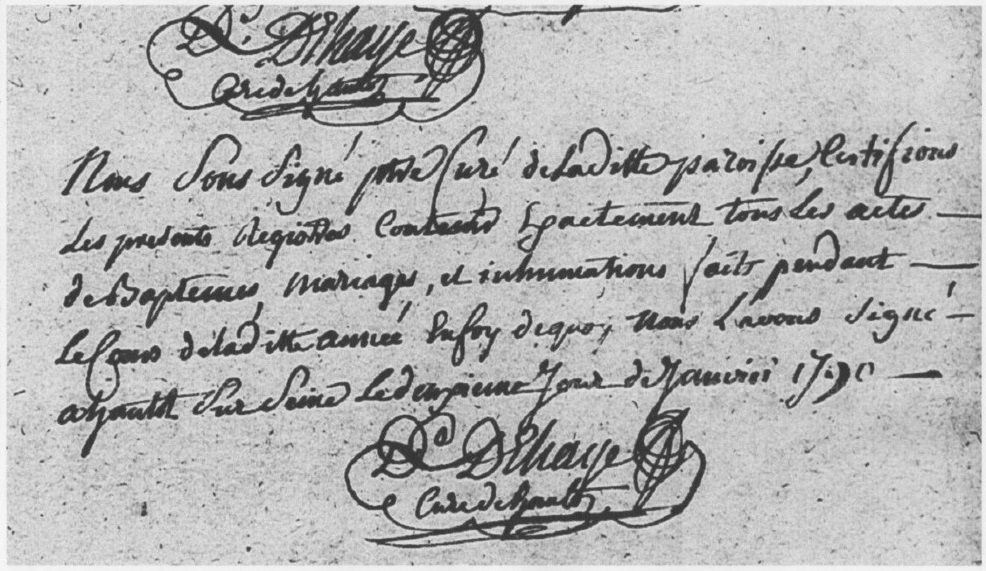 D. Dehaye
Curé de hautot
Nous Sous Signé ptre Curé de Laditte paroisse, Certifions
Les presents Registres Contenir Exactement tous Les actes
de Baptemes, mariages, et inhumations faits pendant
Le Cours de Laditte année En foy de quoy nous L'avons signé
a hautot Sur Seine Le deuxieme Jour de Janvier
D. Dehaye
Curé de hautot